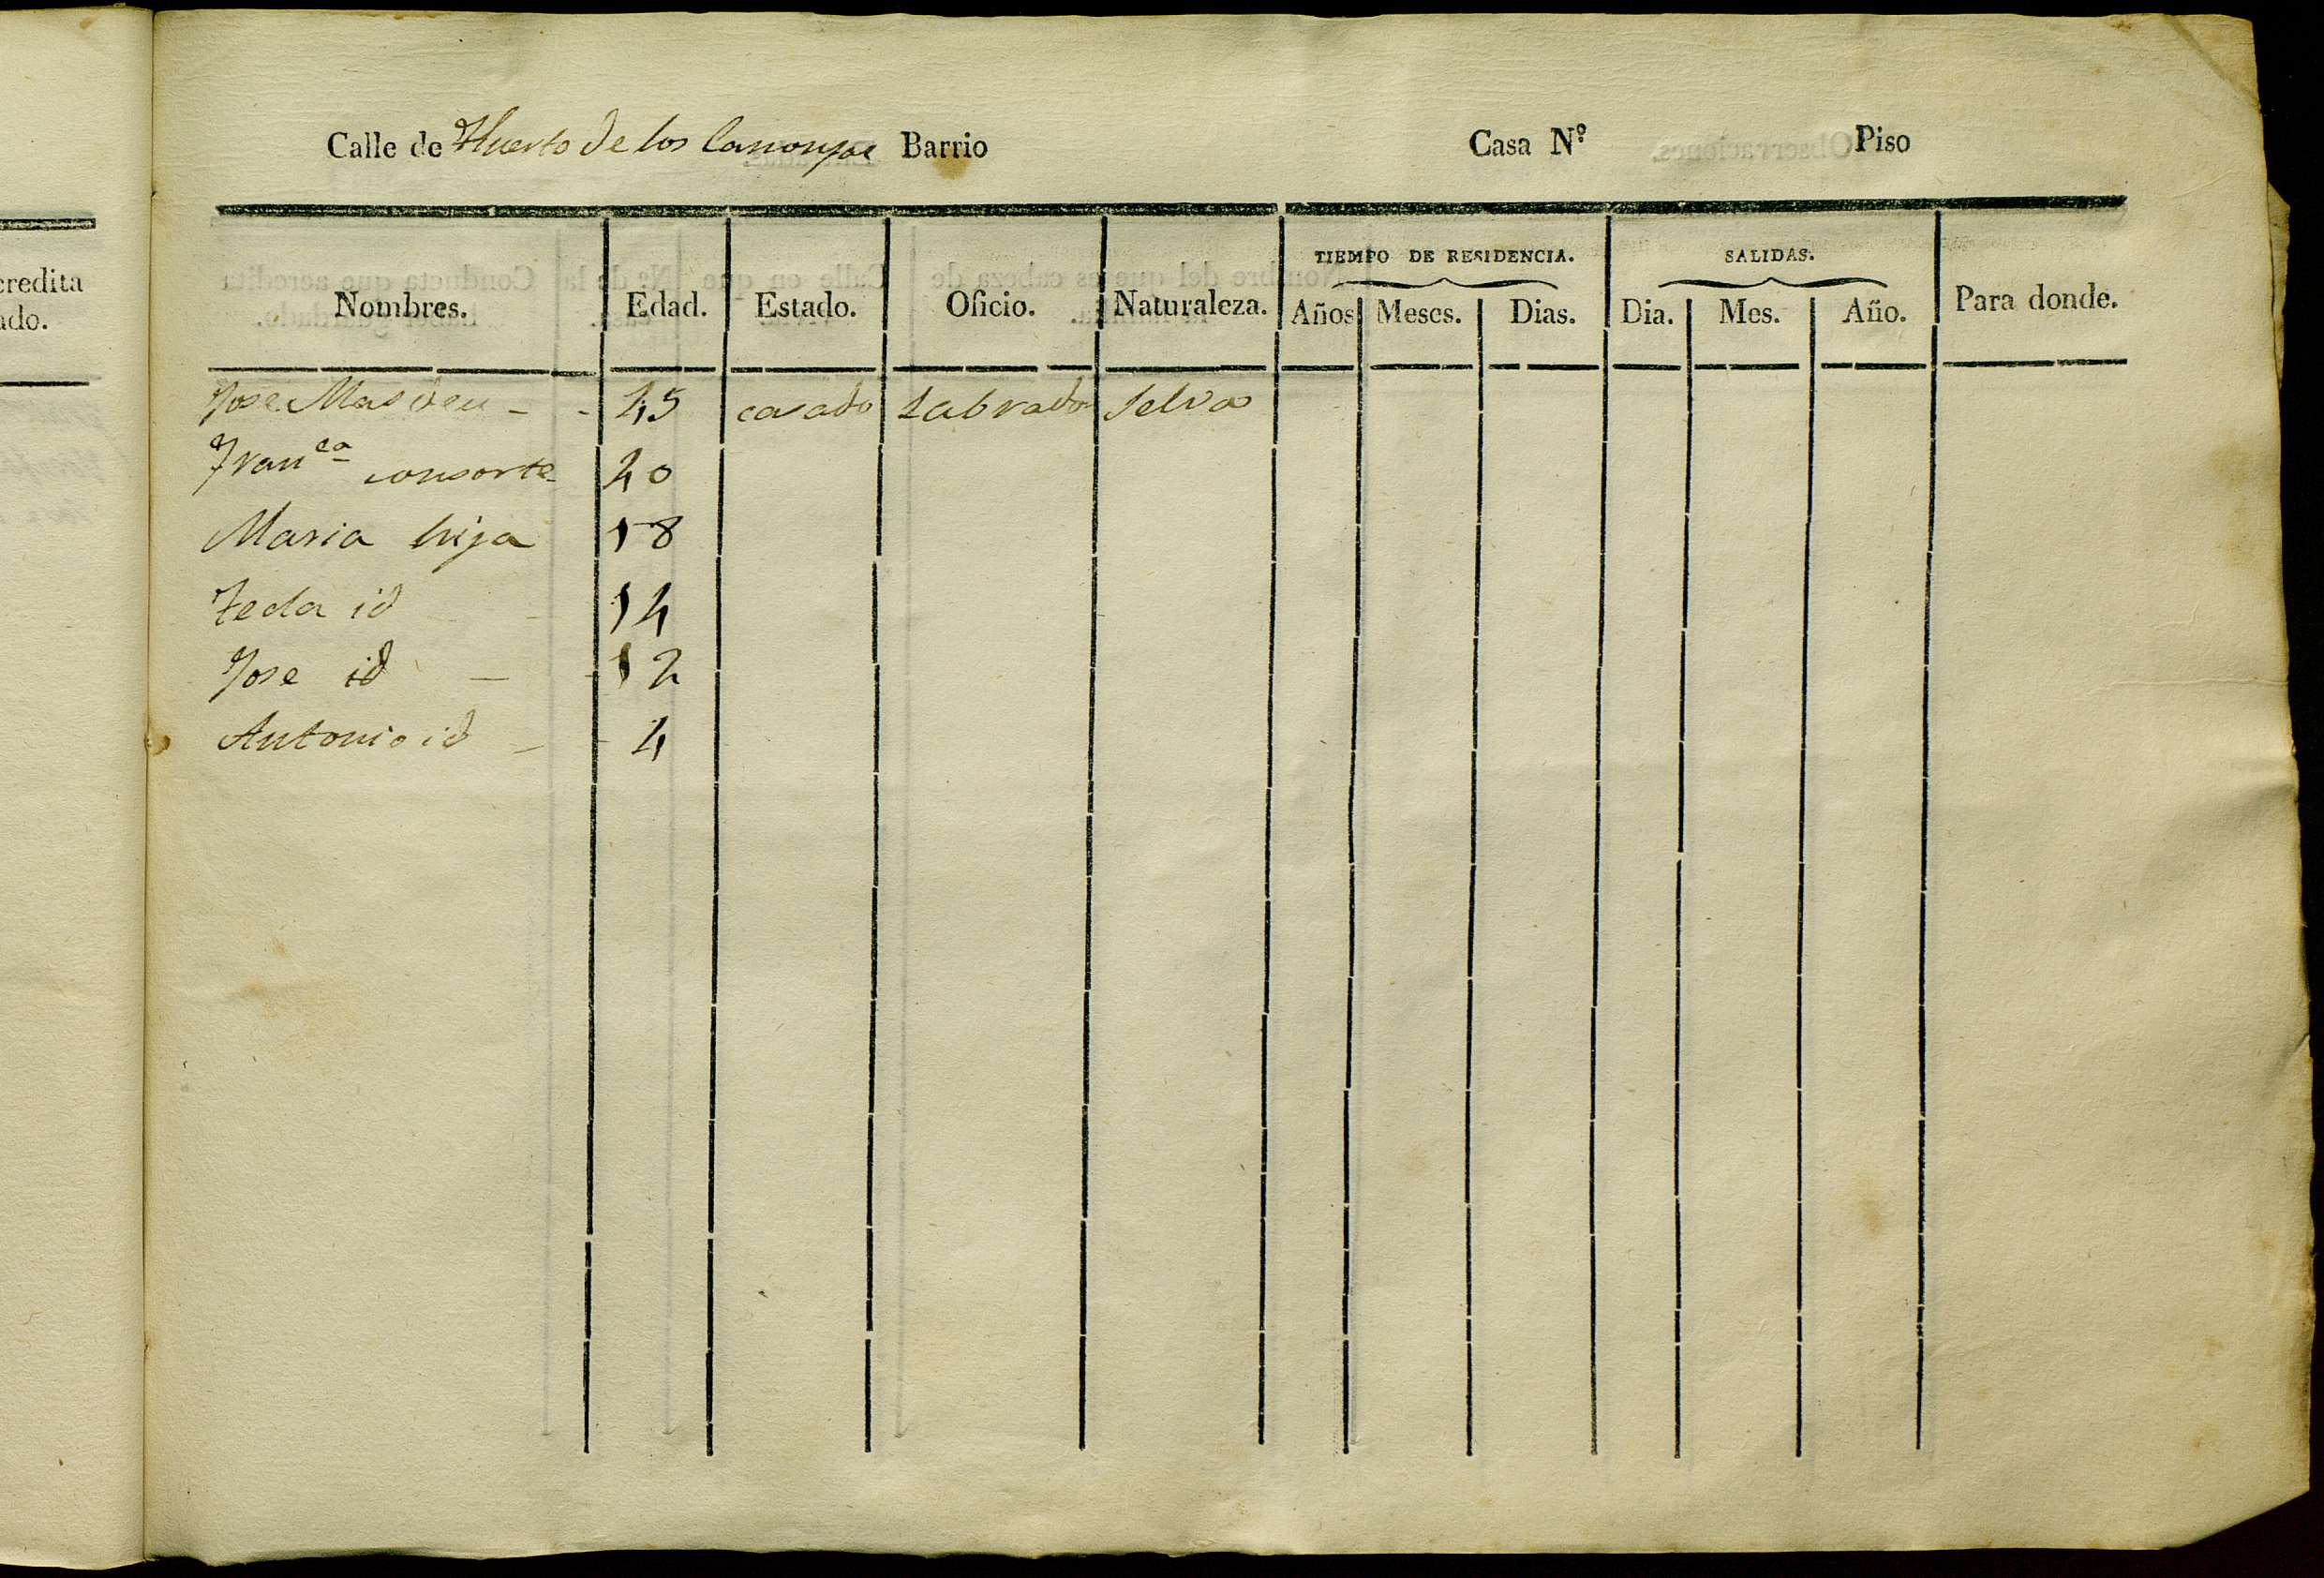 credita
ado.
Calle de Huerto de los Canonjes Barrio Casa N.º Piso
TIEMPO DE RESIDENCIA. SALIDAS.
Nombres. Edad. Estado. Oficio. Naturaleza. Años Meses. Dias. Dia. Mes. Año. Para donde.
Jose Masdeu - - 45 casado Labrador Selva
Fran^ca consorte 40
Maria hija 18
Tecla id - 14
Jose id - - 12
Antonio id - - 4